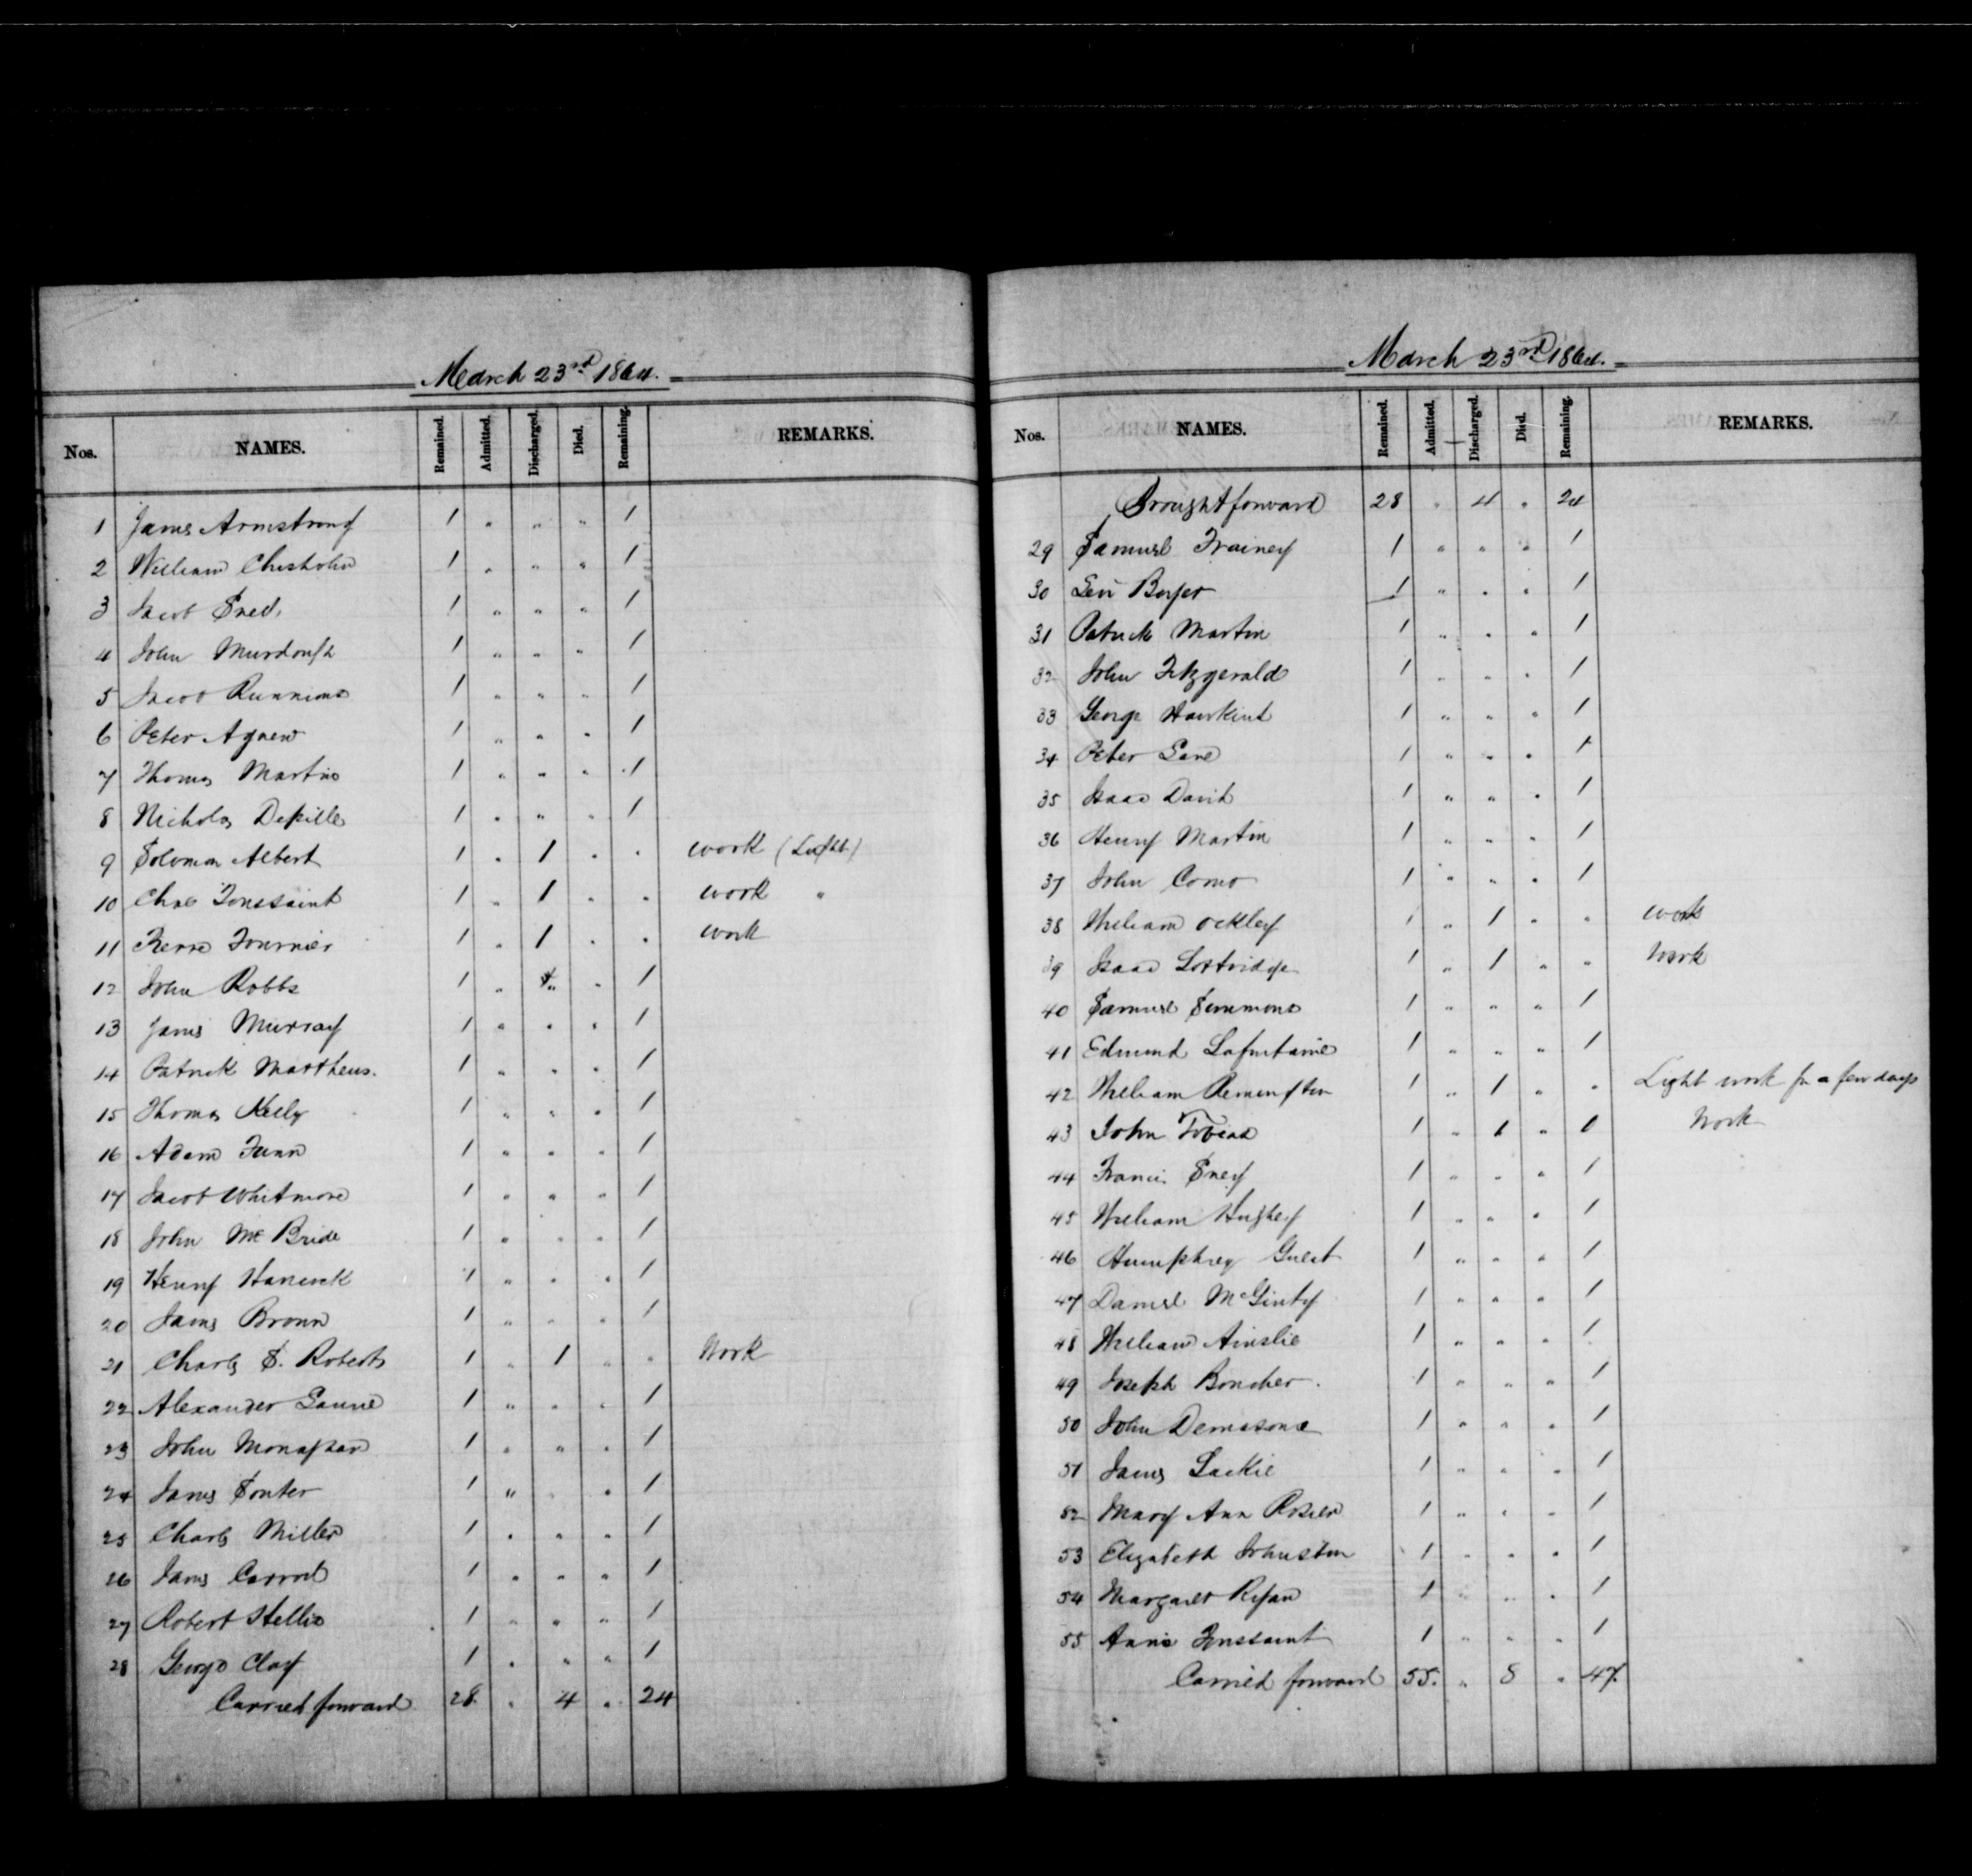 March 23rd 1864.
Nos. NAMES. Remained. Admitted. Discharged. Died. Remaining. REMARKS.
1 James Armstrong 1 " " " 1
2 William Chisholm 1 " " " 1
3 Jacob Sned. 1 " " " 1
4 John Murdough 1 " " " 1
5 Jacob Runnions 1 " " " 1
6 Peter Agnew 1 " " " 1
7 Thomas Martin 1 " " " 1
8 Nicholas Depille 1 " " " 1
9 Solomon Albert 1 " 1 " " work (Light)
10 Chas Toussaint 1 " 1 " " work "
11 Pierre Fournier 1 " 1 " " work
12 John Robbs 1 " " " 1
13 James Murray 1 " " " 1
14 Patrick Matthews. 1 " " " 1
15 Thomas Kelly 1 " " " 1
16 Adam Funn 1 " " " 1
17 Jacob Whitmore 1 " " " 1
18 John McBride 1 " " " 1
19 Henry Hancock 1 " " " 1
20 James Brown 1 " " " 1
21 Charles S. Roberts 1 " 1 " " Work
22 Alexander 1 " " " 1
23 John Monaghan 1 " " " 1
24 James Souter 1 " " " 1
25 Charles Miller 1 " " " 1
26 James Carrol 1 " " " 1
27 Robert 1 " " " 1
28 George Clay 1 " " " 1
Carried forward 28. " 4 " 24
March 23rd 1864.
Nos. NAMES. Remained. Admitted. Discharged. Died. Remaining. REMARKS.
Brought forward 28 " 4 " 24
29 Samuel Trainey 1 " " " 1
30 Levi Boyer 1 " " " 1
31 Patrick Martin 1 " " " 1
32 John Fitzgerald 1 " " " 1
33 George Hawkins 1 " " " 1
34 Peter Lane 1 " " " 1
35 Isaac David 1 " " " 1
36 Henry Martin 1 " " " 1
37 John Como 1 " " " 1
38 William Ockley 1 " 1 " " work
39 Isaac Lottridge 1 " 1 " " Work
40 Samuel Simmons 1 " " " 1
41 Edmund Lafontaine 1 " " " 1
42 William Remington 1 " 1 " " Light work for a few days
43 John Tobias 1 " 1 " 0 Work
44 Francis Sney 1 " " " 1
45 William Hughey 1 " " " 1
46 Humphrey Guest 1 " " " 1
47 Daniel McGinty 1 " " " 1
48 William Ainslie 1 " " " 1
49 Joseph Boucher. 1 " " " 1
50 John Demasone 1 " " " 1
51 James Lackie 1 " " " 1
52 Mary Ann Rosier 1 " " " 1
53 Elizabeth Johnston 1 " " " 1
54 Margaret Ryan 1 " " " 1
55 Annie Toussaint 1 " " " 1
Carried forward 55. " 8 " 47.